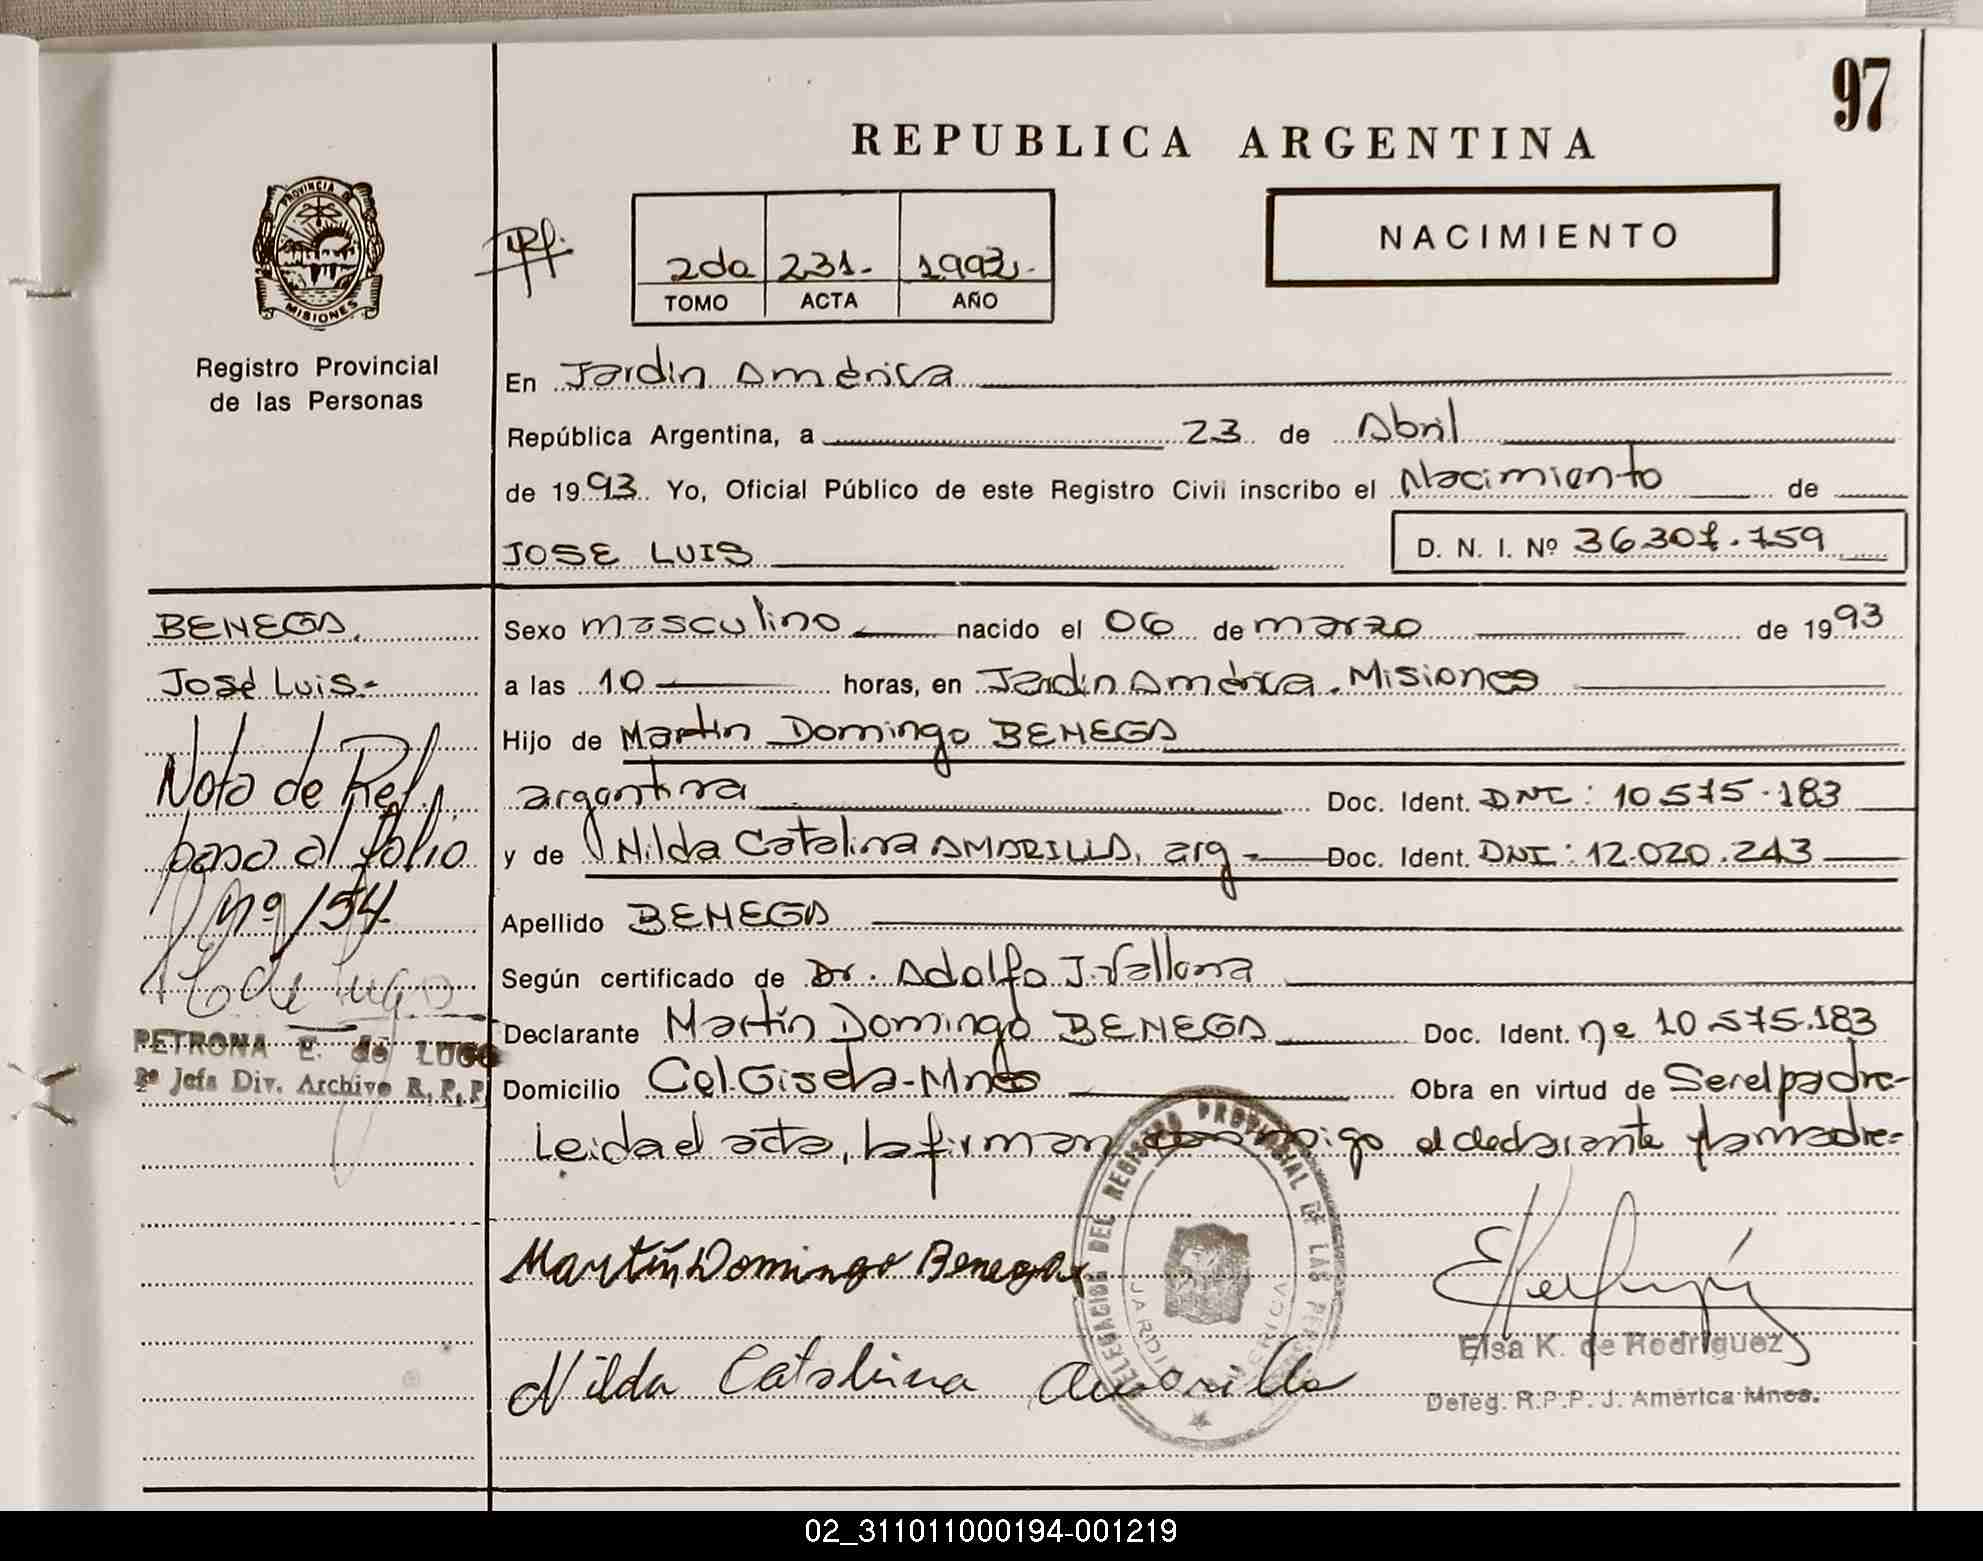 97
REPUBLICA ARGENTINA
PROVINCIA DE
MISIONES
Registro Provincial
de las Personas
2da 231.- 1993.-
TOMO ACTA AÑO
NACIMIENTO
En Jardín América
República Argentina, a 23 de Abril
de 1993 Yo, Oficial Público de este Registro Civil inscribo el Nacimiento de
JOSE LUIS D. N. I. Nº 36.307.759
BENEGA
José Luis.-
Nota de Ref.
paso al folio
nº 154
PETRONA E. de LUGO
2ª Jefa Div. Archivo R. P. P.
Sexo masculino nacido el 06 de marzo de 1993
a las 10 horas, en Jardín América. Misiones
Hijo de Martín Domingo BENEGA
argentina Doc. Ident. DNI: 10.575.183
y de Nilda Catalina AMARILLA, arg - Doc. Ident. DNI: 12.020.243
Apellido BENEGA
Según certificado de Dr. Adolfo J. Vallona
Declarante Martín Domingo BENEGA Doc. Ident. nº 10.575.183
Domicilio Col. Gisela-Mnes Obra en virtud de Ser el padre-
Leída el acta, la firman conmigo el declarante y la madre=
Martín Domingo Benega
Nilda Catalina Amarilla
DELEGACION DEL REGISTRO PROVINCIAL DE LAS PER
JARDIN AMERICA
Elsa K. de Rodriguez
Deleg. R.P.P. J. América Mnes.
02_311011000194-001219